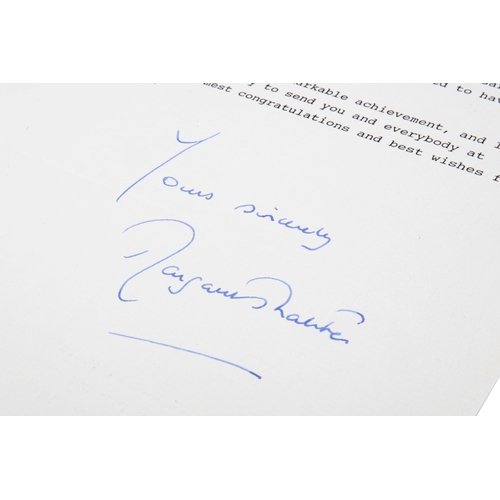 ed to hav
markable achievement, and I
to send you and everybody at
mest congratulations and best wishes f
Yours sincerely
Margaret Thatcher